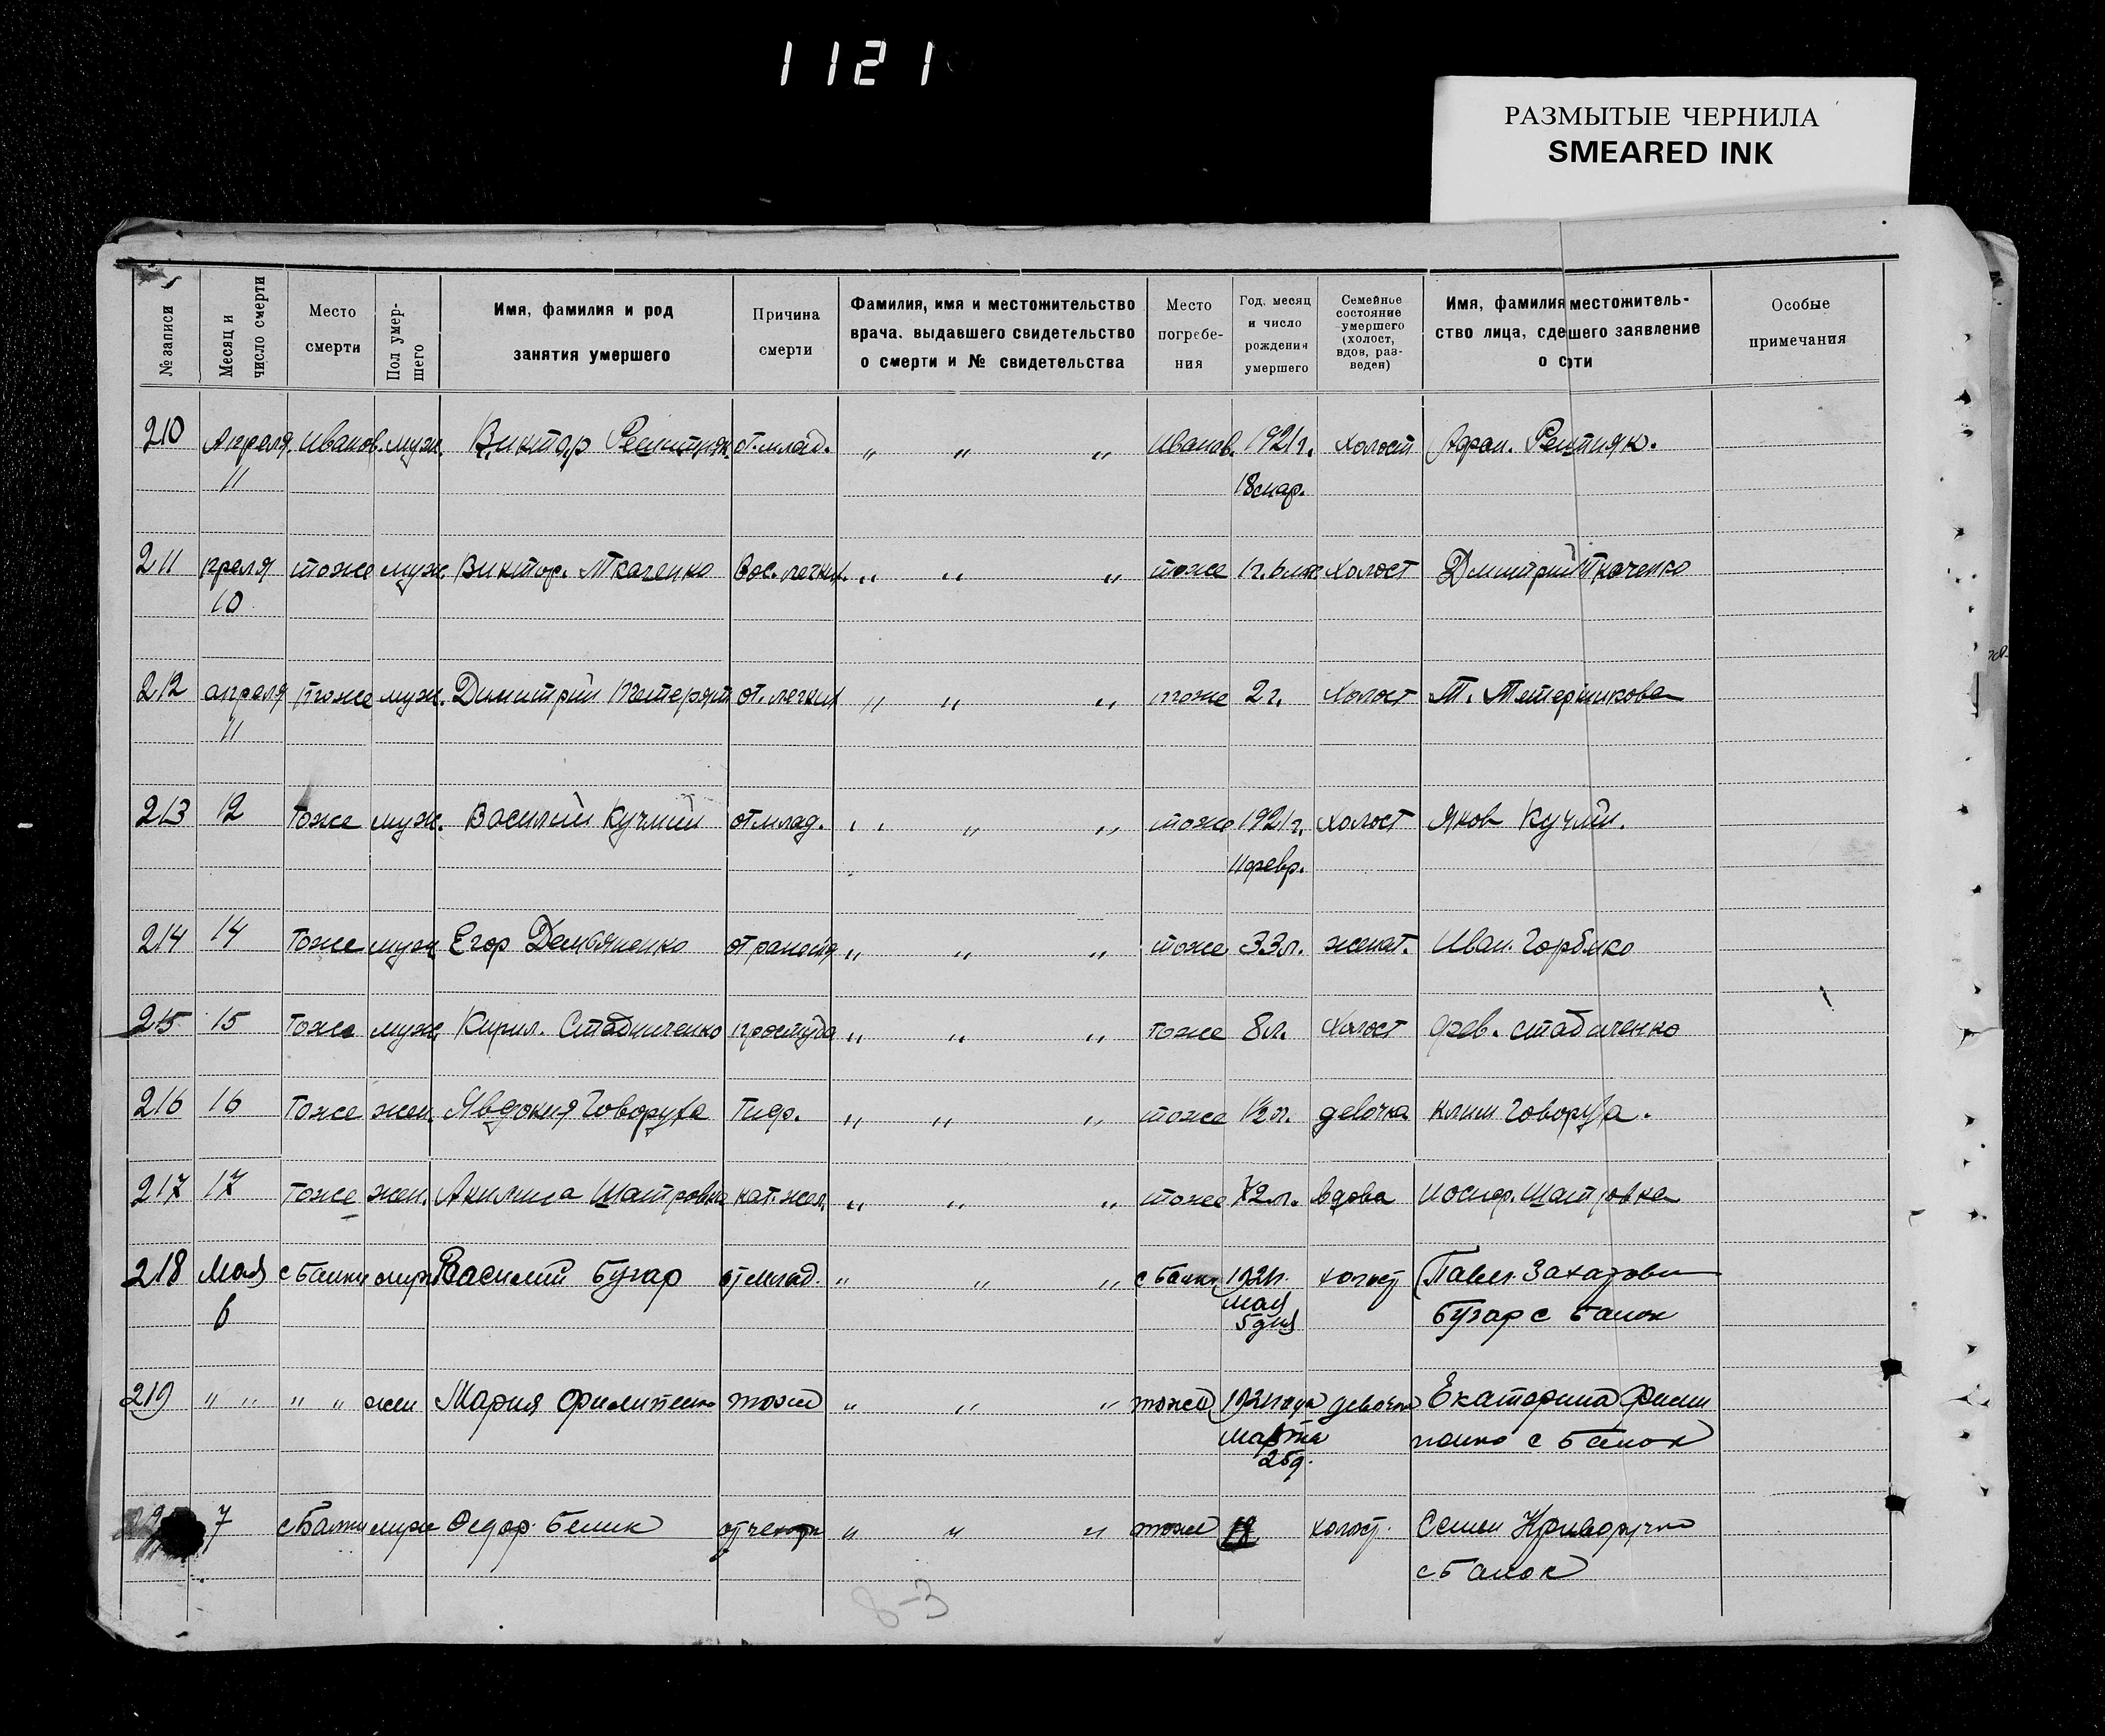 1121
РАЗМЫТЫЕ ЧЕРНИЛА
SMEARED INK
№ записи
Месяц и число смерти
Место смерти
Пол умер- шего
Имя, фамилия и род занятия умершего
Причина смерти
Фамилия, имя и местожительство врача. выдавшего свидетельство о смерти и № свидетельства
Место погребе- ния
Год, месяц и число рождения умершего
Семейное состояние умершего (холост, вдов, раз- веден)
Имя, фамилия местожитель- ство лица, сдешего заявление о сти
Особые примечания
210 Апреля. Иванов. муж. Виктор Решетняк от млад. " " " Иванов. 1921г. Холост Решетняк.
11 18 мар.
211 преля тоже муж. Виктор. Ткаченко Вос. легких. " " " тоже Холост Дмитрий Ткаченко
10
212 апреля тоже муж. Димитрий от. легких " " " тоже 2 г. Холост Т.
11
213 12 тоже муж. Василий Кучмий от млад. " " " тоже 1921г. холост Яков Кучмий.
11 февр.
214 14 Тоже муж Егор Демьяненко от " " " тоже 33 л. женат. Иван.
215 15 Тоже муж Кирил. Стадниченко простуда " " " тоже 8 л. Холост
216 16 Тоже жен. Явдокия Говоруха Тиф. " " " тоже ½ л. девочка Клим Говоруха.
217 17 Тоже жен. Акилина " " " тоже вдова Иосиф.
218 Мая с Балки Василий Бугар от млад. " " " с Балки 1921г. холост Павел. Захарови
6 мая Бугар с Балок
5 дня
219 " " " " жен Мария Филипенко тоже " " " тоже 1921 года девочка Екатерина Фили
марта пенко с Балок
25 д.
7 с Балки Федор. Белик " " " тоже 18 холост. Семен Криворучко
с Балок
8-3